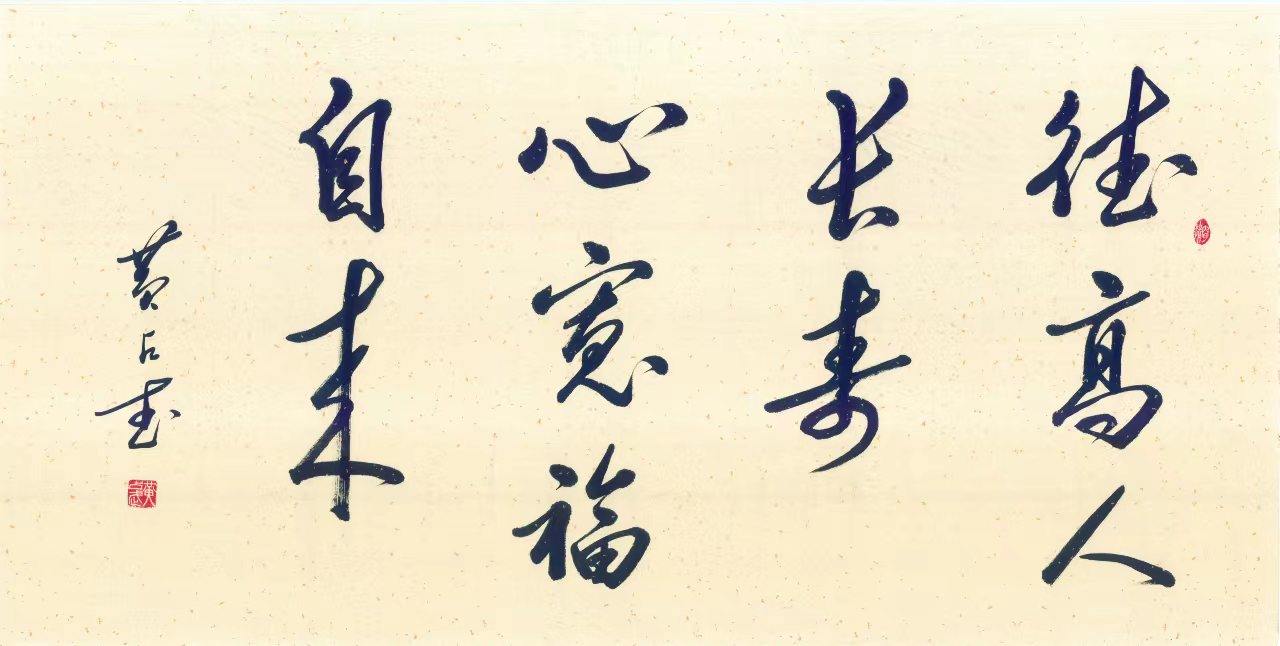 德高人
长寿
心宽福
自来
黄占武